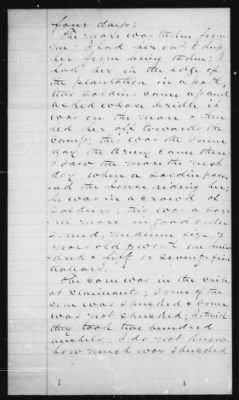 four days;
The mare was taken from
me; I had her out to keep
her from being taken; I
had her in the edge of
the plantation in a path,
two soldiers came up and
asked whose bridle it
was on the mare & then
led her off towards the
camp; this was the same
day the army came there
I saw the mare the next
day when a soldier pass-
ed the house riding her;
he was in a crowd of
soldiers; this was a sor-
rel mare in good order
sound, medium size, 7
year old & worth one hun
dred & fifty or seventy five
dollars.
The corn was in the crib
of claimant; some of the
corn was shucked & some
was not shucked; I think
they took two hundred
bushels. I do not know
how much was shucked